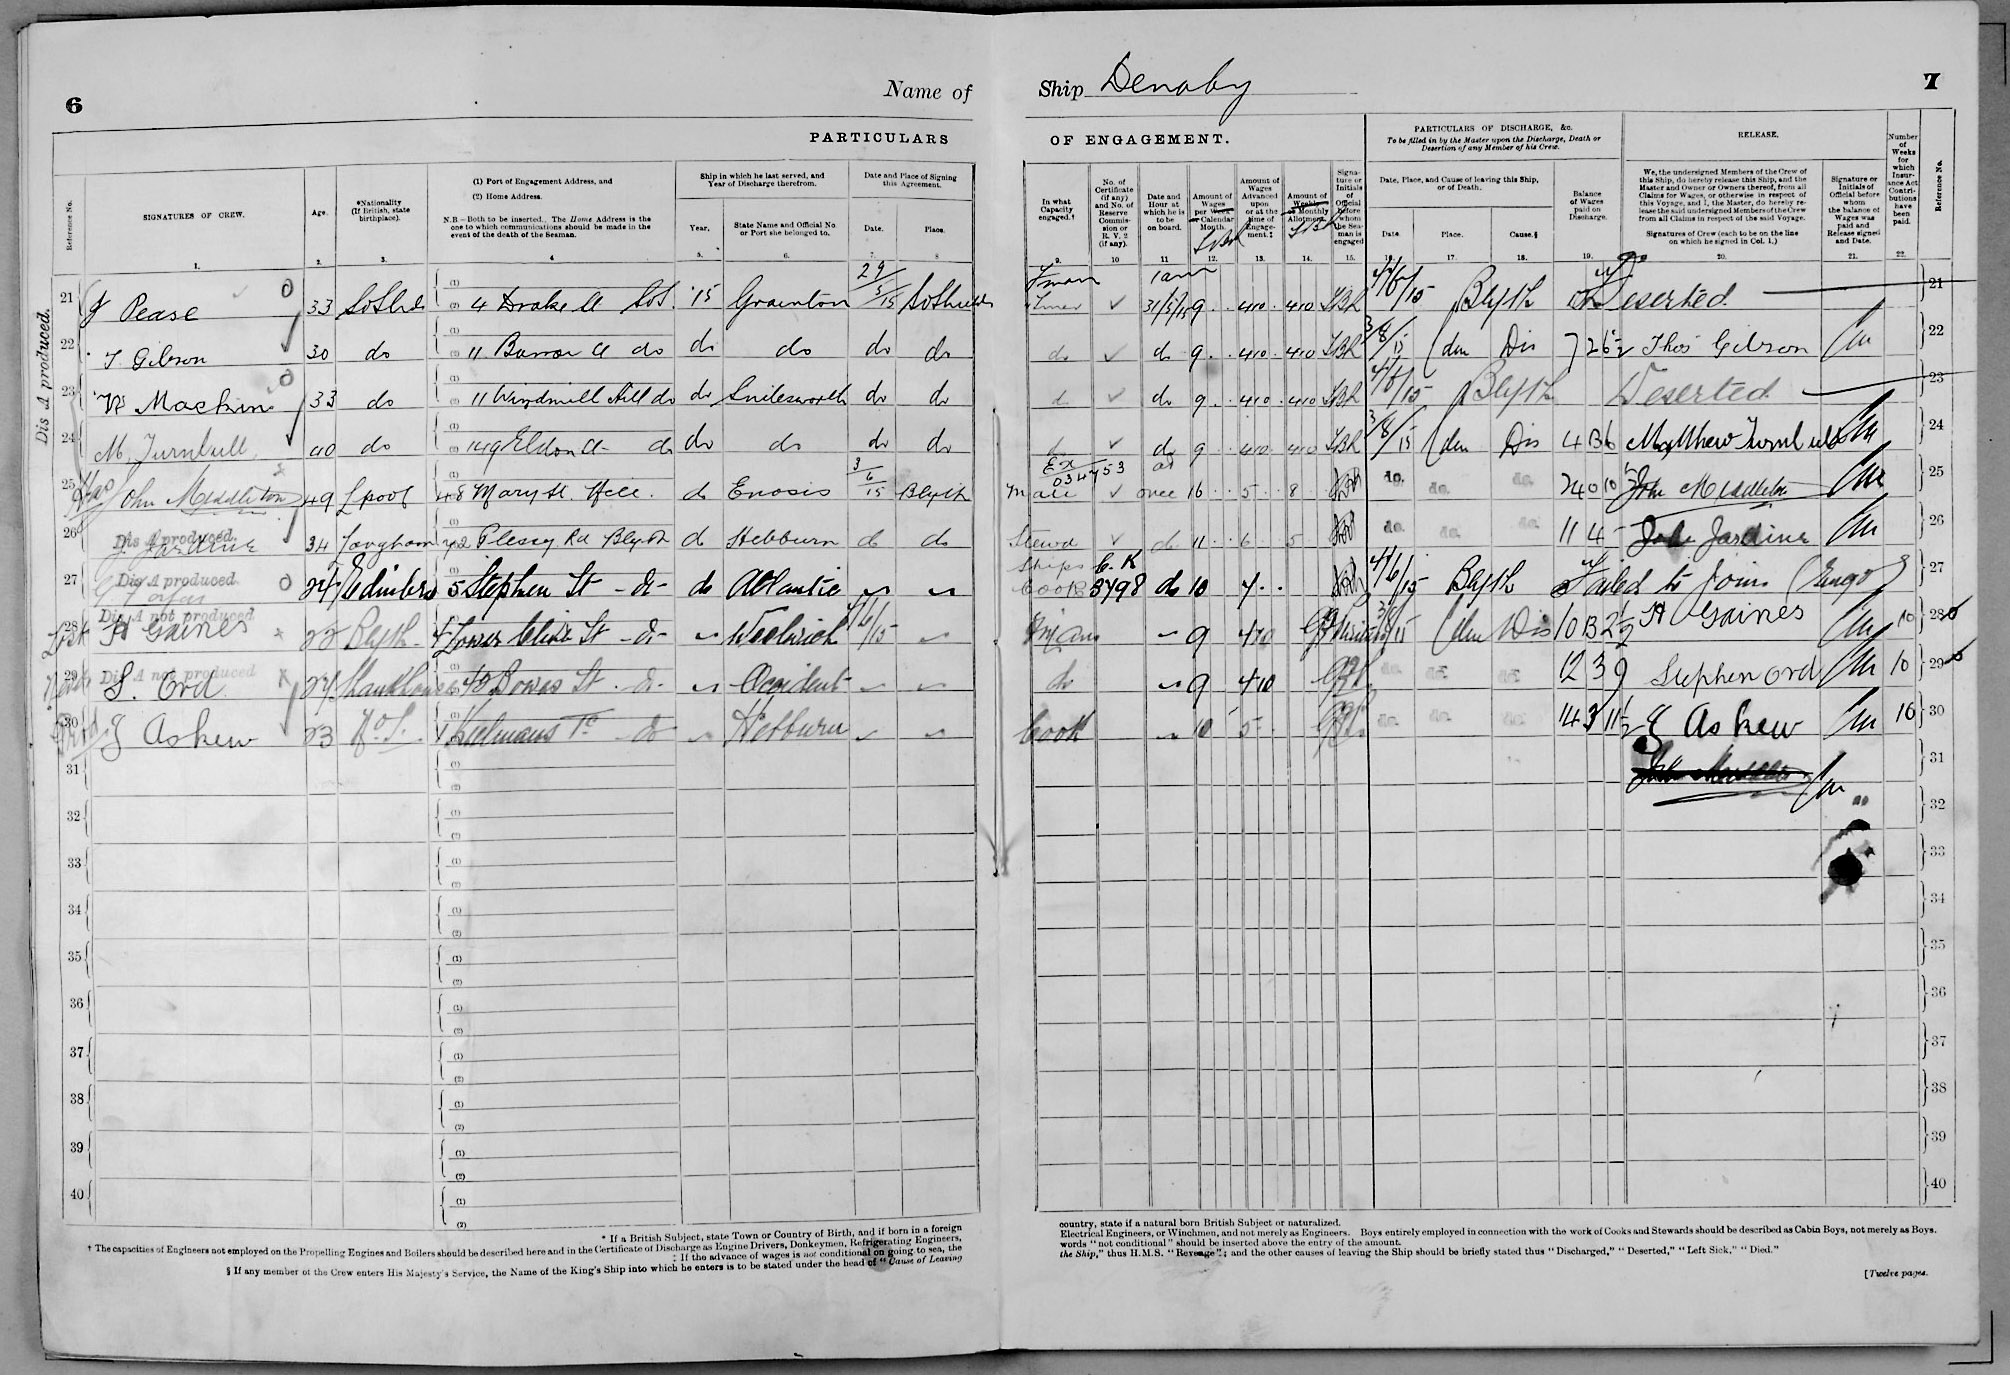 6
Name of
Ship Denaby
7
PARTICULARS
OF ENGAGEMENT.
PARTICULARS OF DISCHARGE, &c.
To be filled in by the Master upon the Discharge, Death or
Desertion of any Member of his Crew.
RELEASE.
Reference No.
SIGNATURES OF CREW.
Age.
*Nationality
(If British, state
birthplace).
(1) Port of Engagement Address, and
(2) Home Address.
N.B.—Both to be inserted. The Home Address is the
one to which communications should be made in the
event of the death of the Seaman.
Ship in which he last served, and
Year of Discharge therefrom.
Year.
State Name and Official No.
or Port she belonged to.
Date and Place of Signing
this Agreement.
Date.
Place.
In what
Capacity
engaged.†
No. of
Certificate
(if any)
and No. of
Reserve
Commis-
sion or
R. V. 2
(if any).
Date and
Hour at
which he is
to be
on board.
Amount of
Wages
per Week
or Calendar
Month.
Amount of
Wages
Advanced
upon
or at the
time of
Engage-
ment.‡
Amount of
Weekly
or Monthly
Allotment.
Signa-
ture or
Initials
of
Official
before
whom
the Sea-
man is
engaged
Date, Place, and Cause of leaving this Ship,
or of Death.
Date.
Place.
Cause.§
Balance
of Wages
paid on
Discharge.
We, the undersigned Members of the Crew of
this Ship, do hereby release this Ship, and the
Master and Owner or Owners thereof, from all
Claims for Wages, or otherwise in respect of
this Voyage, and I, the Master, do hereby re-
lease the said undersigned Members of the Crew
from all Claims in respect of the said Voyage.
Signatures of Crew (each to be on the line
on which he signed in Col. 1.)
Signature or
Initials of
Official before
whom
the balance of
Wages was
paid and
Release signed
and Date.
Number
of
Weeks
for
which
Insur-
ance Act
Contri-
butions
have
been
paid.
Reference No.
1. 2. 3. 4 5. 6. 7. 8 9. 10 11 12. 13. 14. 15. 16. 17. 18. 19. 20. 21. 22.
Dis A produced.
21 Pease 33 4 Drake St '15 Grainton 29/5/15 So Shields Fman 1 am 31/5/15 9 4 10 4 10 4/6/15 Blyth Deserted 21
22 T. Gibson 30 do 11 Barron St do do do do do do do 9 4 10 4 10 3/8/15 Dis 7 2 6 Thos Gibson 22
23 Machin 33 do 11 Windmill Hill do do Snilesworth do do do 9 4 10 4 10 4/6/15 Blyth Deserted 23
24 M. Turnbull 40 do 149 Eldon St do do do do do do 9 4 10 4 10 3/8/15 Dis 4 13 6 Matthew Turnbull 24
25 John Middleton 49 Lpool 48 Mary St do Enosis 3/6/15 Blyth Mate 034753 at once 16 5 8 do. do. do. John Middleton 25
26 Dis A produced. J. Jardine 34 Plessy Rd Blyth do Hebburn do do Stewd do 11 6 5 do. do. do. 11 4 John Jardine 26
27 Dis A produced. 24 5 Stephen St do do Atlantic Ships Cook 3798 do 10 4/6/15 Blyth Failed to Join 27
28 Dis A not produced H Gaines 22 Blyth St do Woolwich 4/6/15 9 4 10 Dis 10 13 2½ H Gaines 10 28
29 Dis A not produced S. Ord 24 St do Occident do 9 4 10 do. do. do. 12 3 9 Stephen Ord 10 29
30 Askew 23 do Hebburn Cook 10 5 do. do. do. 14 3 11½ Askew 16 30
31 31
32 32
33 33
34 34
35 35
36 36
37 37
38 38
39 39
40 40
* If a British Subject, state Town or Country of Birth, and if born in a foreign
country, state if a natural born British Subject or naturalized.
† The capacities of Engineers not employed on the Propelling Engines and Boilers should be described here and in the Certificate of Discharge as Engine Drivers, Donkeymen, Refrigerating Engineers,
Electrical Engineers, or Winchmen, and not merely as Engineers. Boys entirely employed in connection with the work of Cooks and Stewards should be described as Cabin Boys, not merely as Boys.
‡ If the advance of wages is not conditional on going to sea, the
words "not conditional" should be inserted above the entry of the amount.
§ If any member of the Crew enters His Majesty's Service, the Name of the King's Ship into which he enters is to be stated under the head of "Cause of Leaving
the Ship," thus H.M.S. "Revenge"; and the other causes of leaving the Ship should be briefly stated thus "Discharged," "Deserted," "Left Sick," "Died."
[Twelve pages.